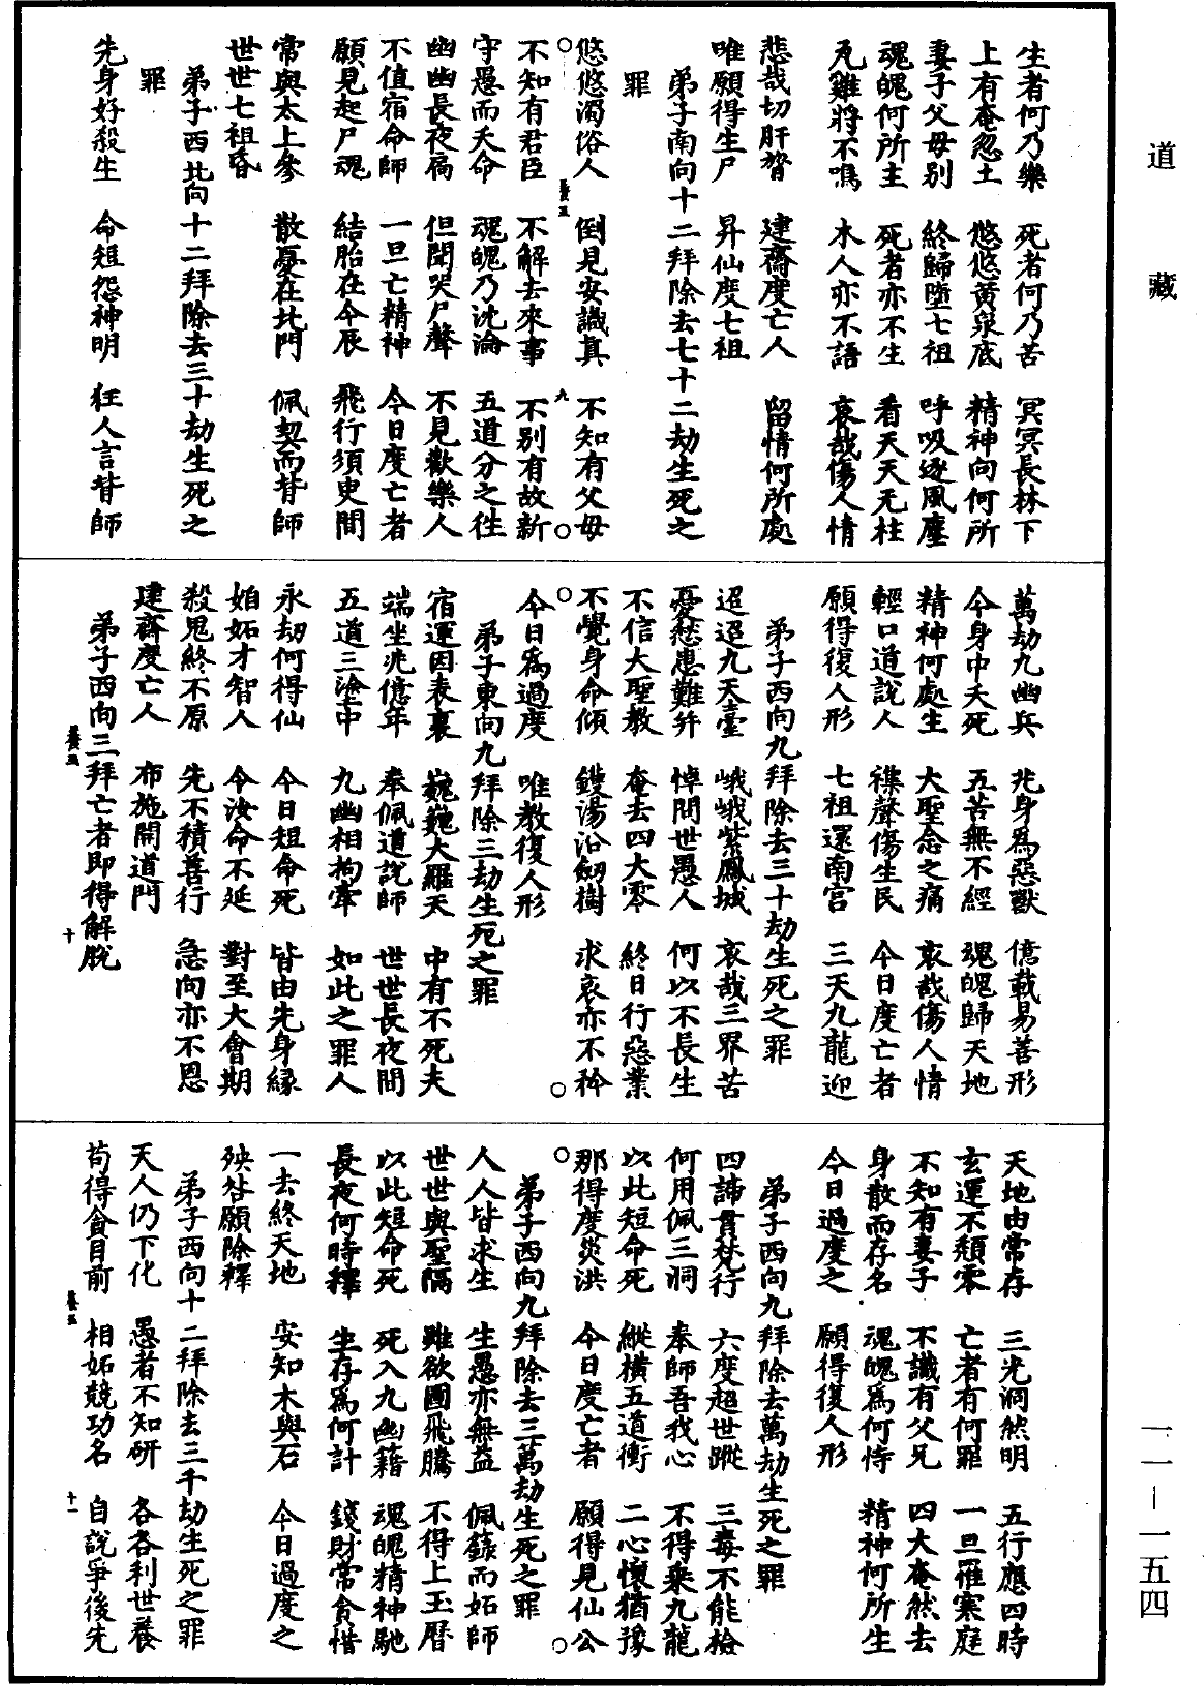 道藏
生者何乃樂　死者何乃苦　冥冥長林下
上有奄忽土　悠悠黄泉底　精神向何所
妻子父母別　終歸墮七祖　呼吸逐風塵
魂魄何所主　死者亦不生　看天天无柱
瓦雞將不鳴　木人亦不語　哀哉傷人情
悲哉切肝膂　建齋度亡人　留情何所處
唯願得生尸　昇仙度七祖
弟子南向十二拜除去七十二劫生死之
罪
悠悠濁俗人　倒見安識真　不知有父母
不知有君臣　不解去來事　不別有故新
守愚而夭命　魂魄乃沈淪　五道分之往
幽幽長夜痛　但聞哭尸聲　不見歡樂人
不值宿命師　一旦亡精神　今日度亡者
願見起尸魂　結胎在今辰　飛行須臾間
常與太上參　散憂在北門　佩契而背師
世世七祖昏
弟子西北向十二拜除去三十劫生死之
罪
先身好殺生　命短怨神明　狂人言背師
萬劫九幽兵　兆身爲惡獸　億載易善形
今身中夭死　五苦無不經　魂魄歸天地
精神何處生　大聖念之痛　哀哉傷人情
輕口道說人　襍聲傷生民　今日度亡者
願得復人形　七祖還南宮　三天九龍迎
弟子西向九拜除去三十劫生死之罪
迢迢九天臺　峨峨紫鳳城　哀哉三界苦
憂愁患難并　悼問世愚人　何以不長生
不信大聖教　奄去四大零　終日行惡業
不覺身命傾　鑊湯沿劒樹　求哀亦不矜
今日爲過度　唯教復人形
弟子東向九拜除三劫生死之罪
宿運因表裏　巍巍大羅天　中有不死夫
端坐兆億年　奉佩道說師　世世長夜間
五道三塗中　九幽相拘牽　如此之罪人
永劫何得仙　今日短命死　皆由先身緣
妬妬才智人　今汝命不延　對至大會期
殺鬼終不原　先不積善行　急向亦不恩
建齋度亡人　布施開道門
弟子西向三拜亡者即得解脫
天地由常存　三光洞然明　五行應四時
玄運不頹零　亡者有何罪　一旦罹寒庭
不知有妻子　不識有父兄　四大奄然去
身散而存名　魂魄爲何恃　精神何所生
今日過度之　願得復人形
弟子西向九拜除去萬劫生死之罪
四諦貫梵行　六度超世蹤　三毒不能撿
何用佩三洞　奉師吾我心　不得乘九龍
以此短命死　縱橫五道衝　二心懷猶豫
那得度災洪　今日度亡者　願得見仙公
弟子西向九拜除去三萬劫生死之罪
人人皆求生　生愚亦無益　佩籙而妬師
世世與聖隔　雖欲圖飛騰　不得上玉曆
以此短命死　死入九幽籍　魂魄精神馳
長夜何時釋　生存爲何計　錢財常貪惜
一去終天地　安知木與石　今日過度之
殃咎願除釋
弟子西向十二拜除去三千劫生死之罪
天人仍下化　愚者不知研　各各利世養
苟得貪目前　相妬競功名　自說爭後先
九
十
十一
一一—一五四